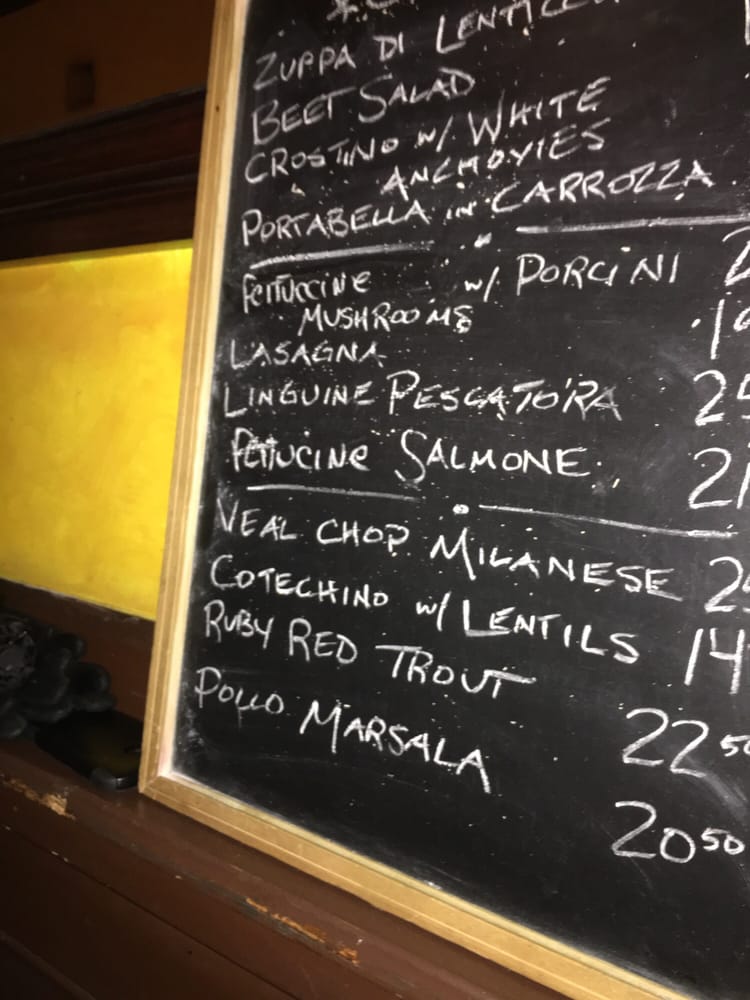 ZUPPA DI
BEET SALAD
CROSTINO w/ WHITE
ANCHOVIES
PORTABELLA in CARROZZA
FETTUCCINE w/ PORCINI
MUSHROOMS
LASAGNA
LINGUINE PESCATORA
FETTUCINE SALMONE
VEAL CHOP MILANESE
COTECHINO w/ LENTILS 14
RUBY RED TROUT
22 50
POLLO MARSALA
20 50